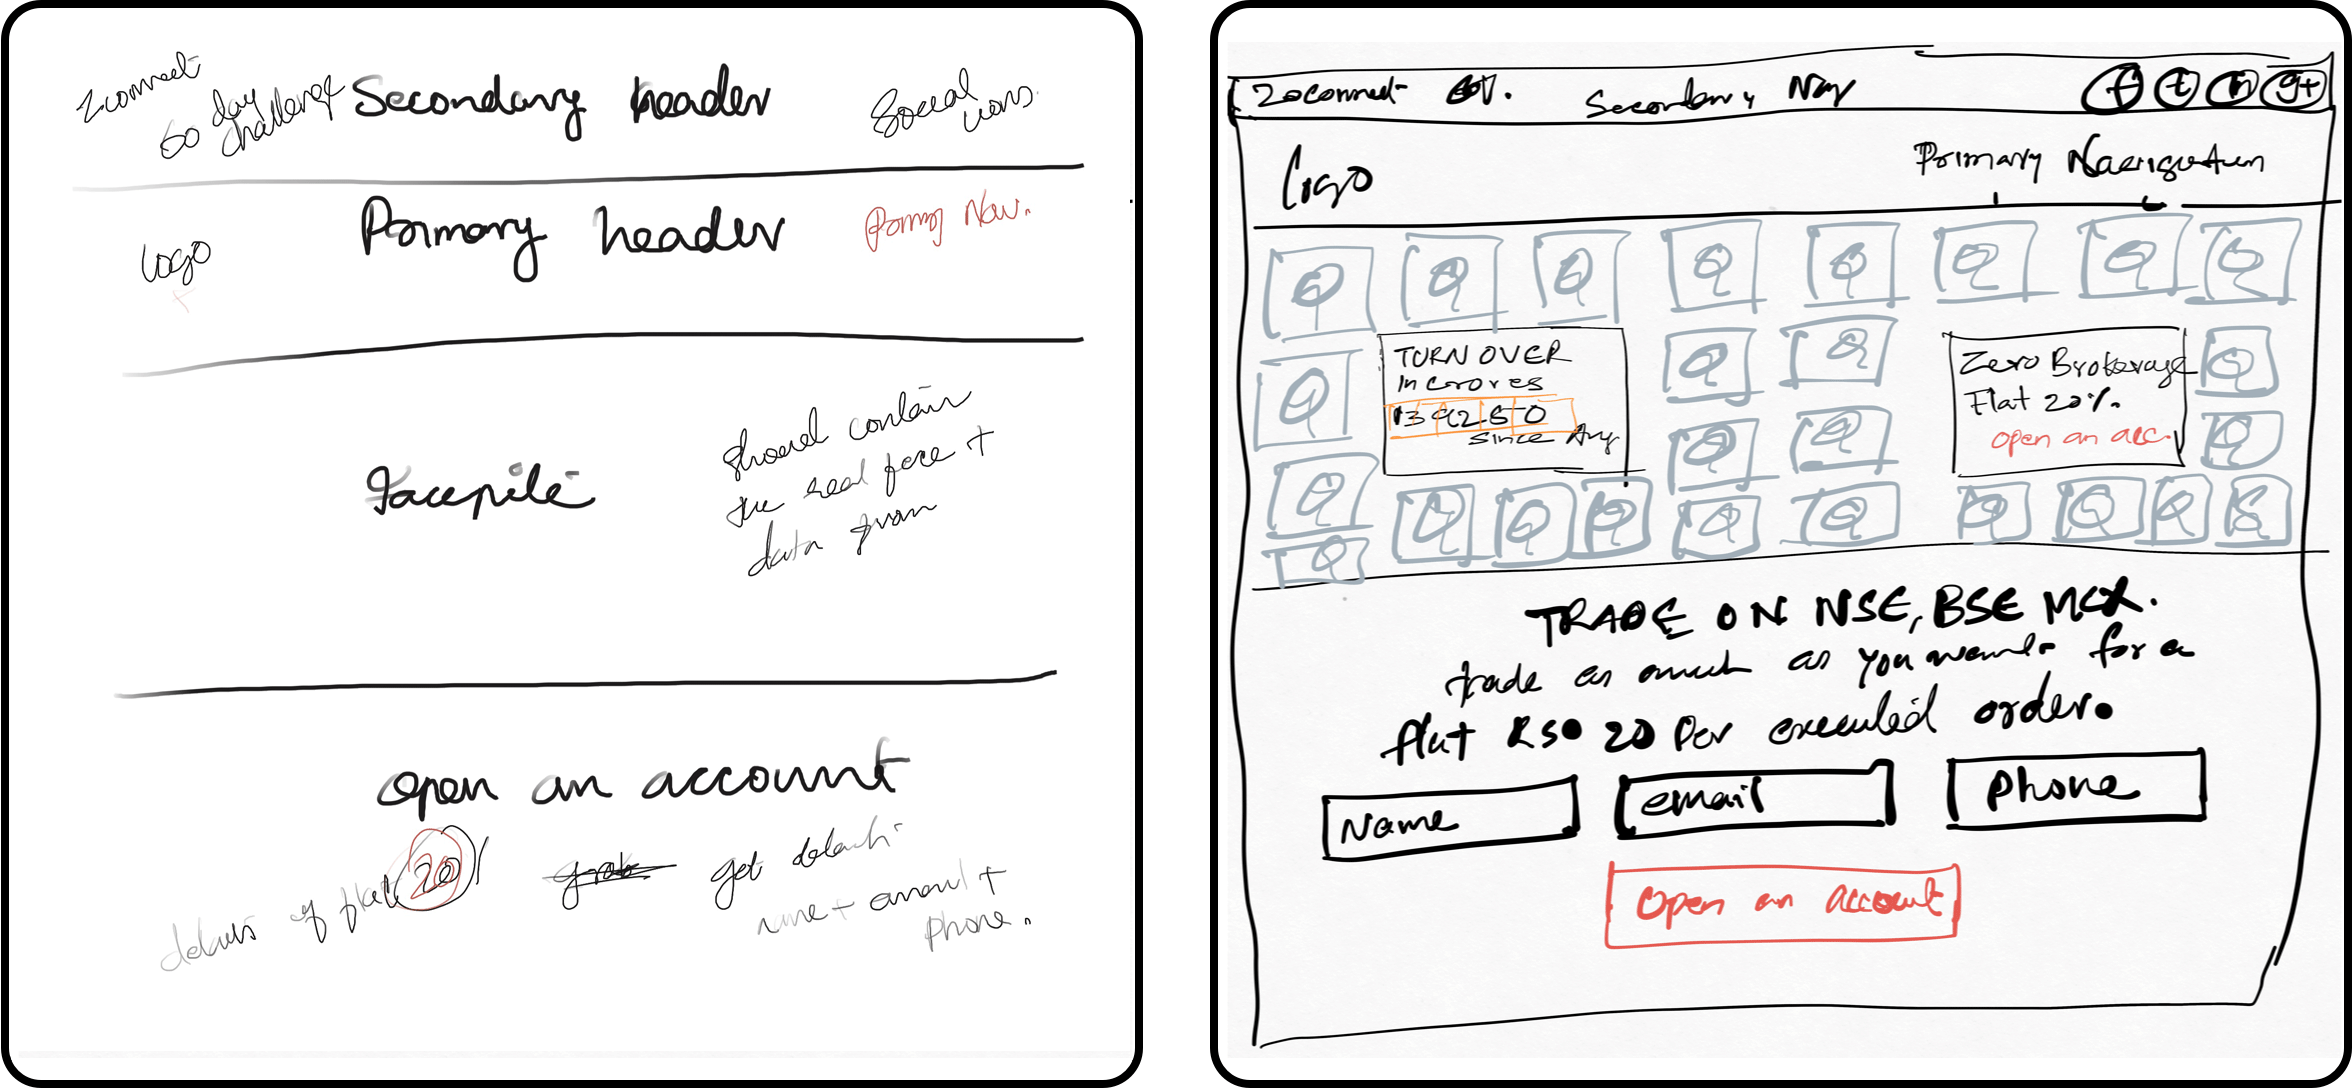 Zconnect
60 day challenge
Secondary header
Social icons.
logo
Primary header
Primry Nav.
Facepile
should contain
the real face +
data from
open an account
details of flat 20
grab
get details
name + email +
phone.
Zoconnect
Secondary Nav
f t in g+
logo
Primary Navigation
TURN OVER
In crores
1392.50
since Aug
Zero Brokerage
Flat 20%.
open an acc.
TRADE ON NSE, BSE MCX.
trade as much as you want for a
flat RS. 20 Per executed order.
Name
email
phone
open an account